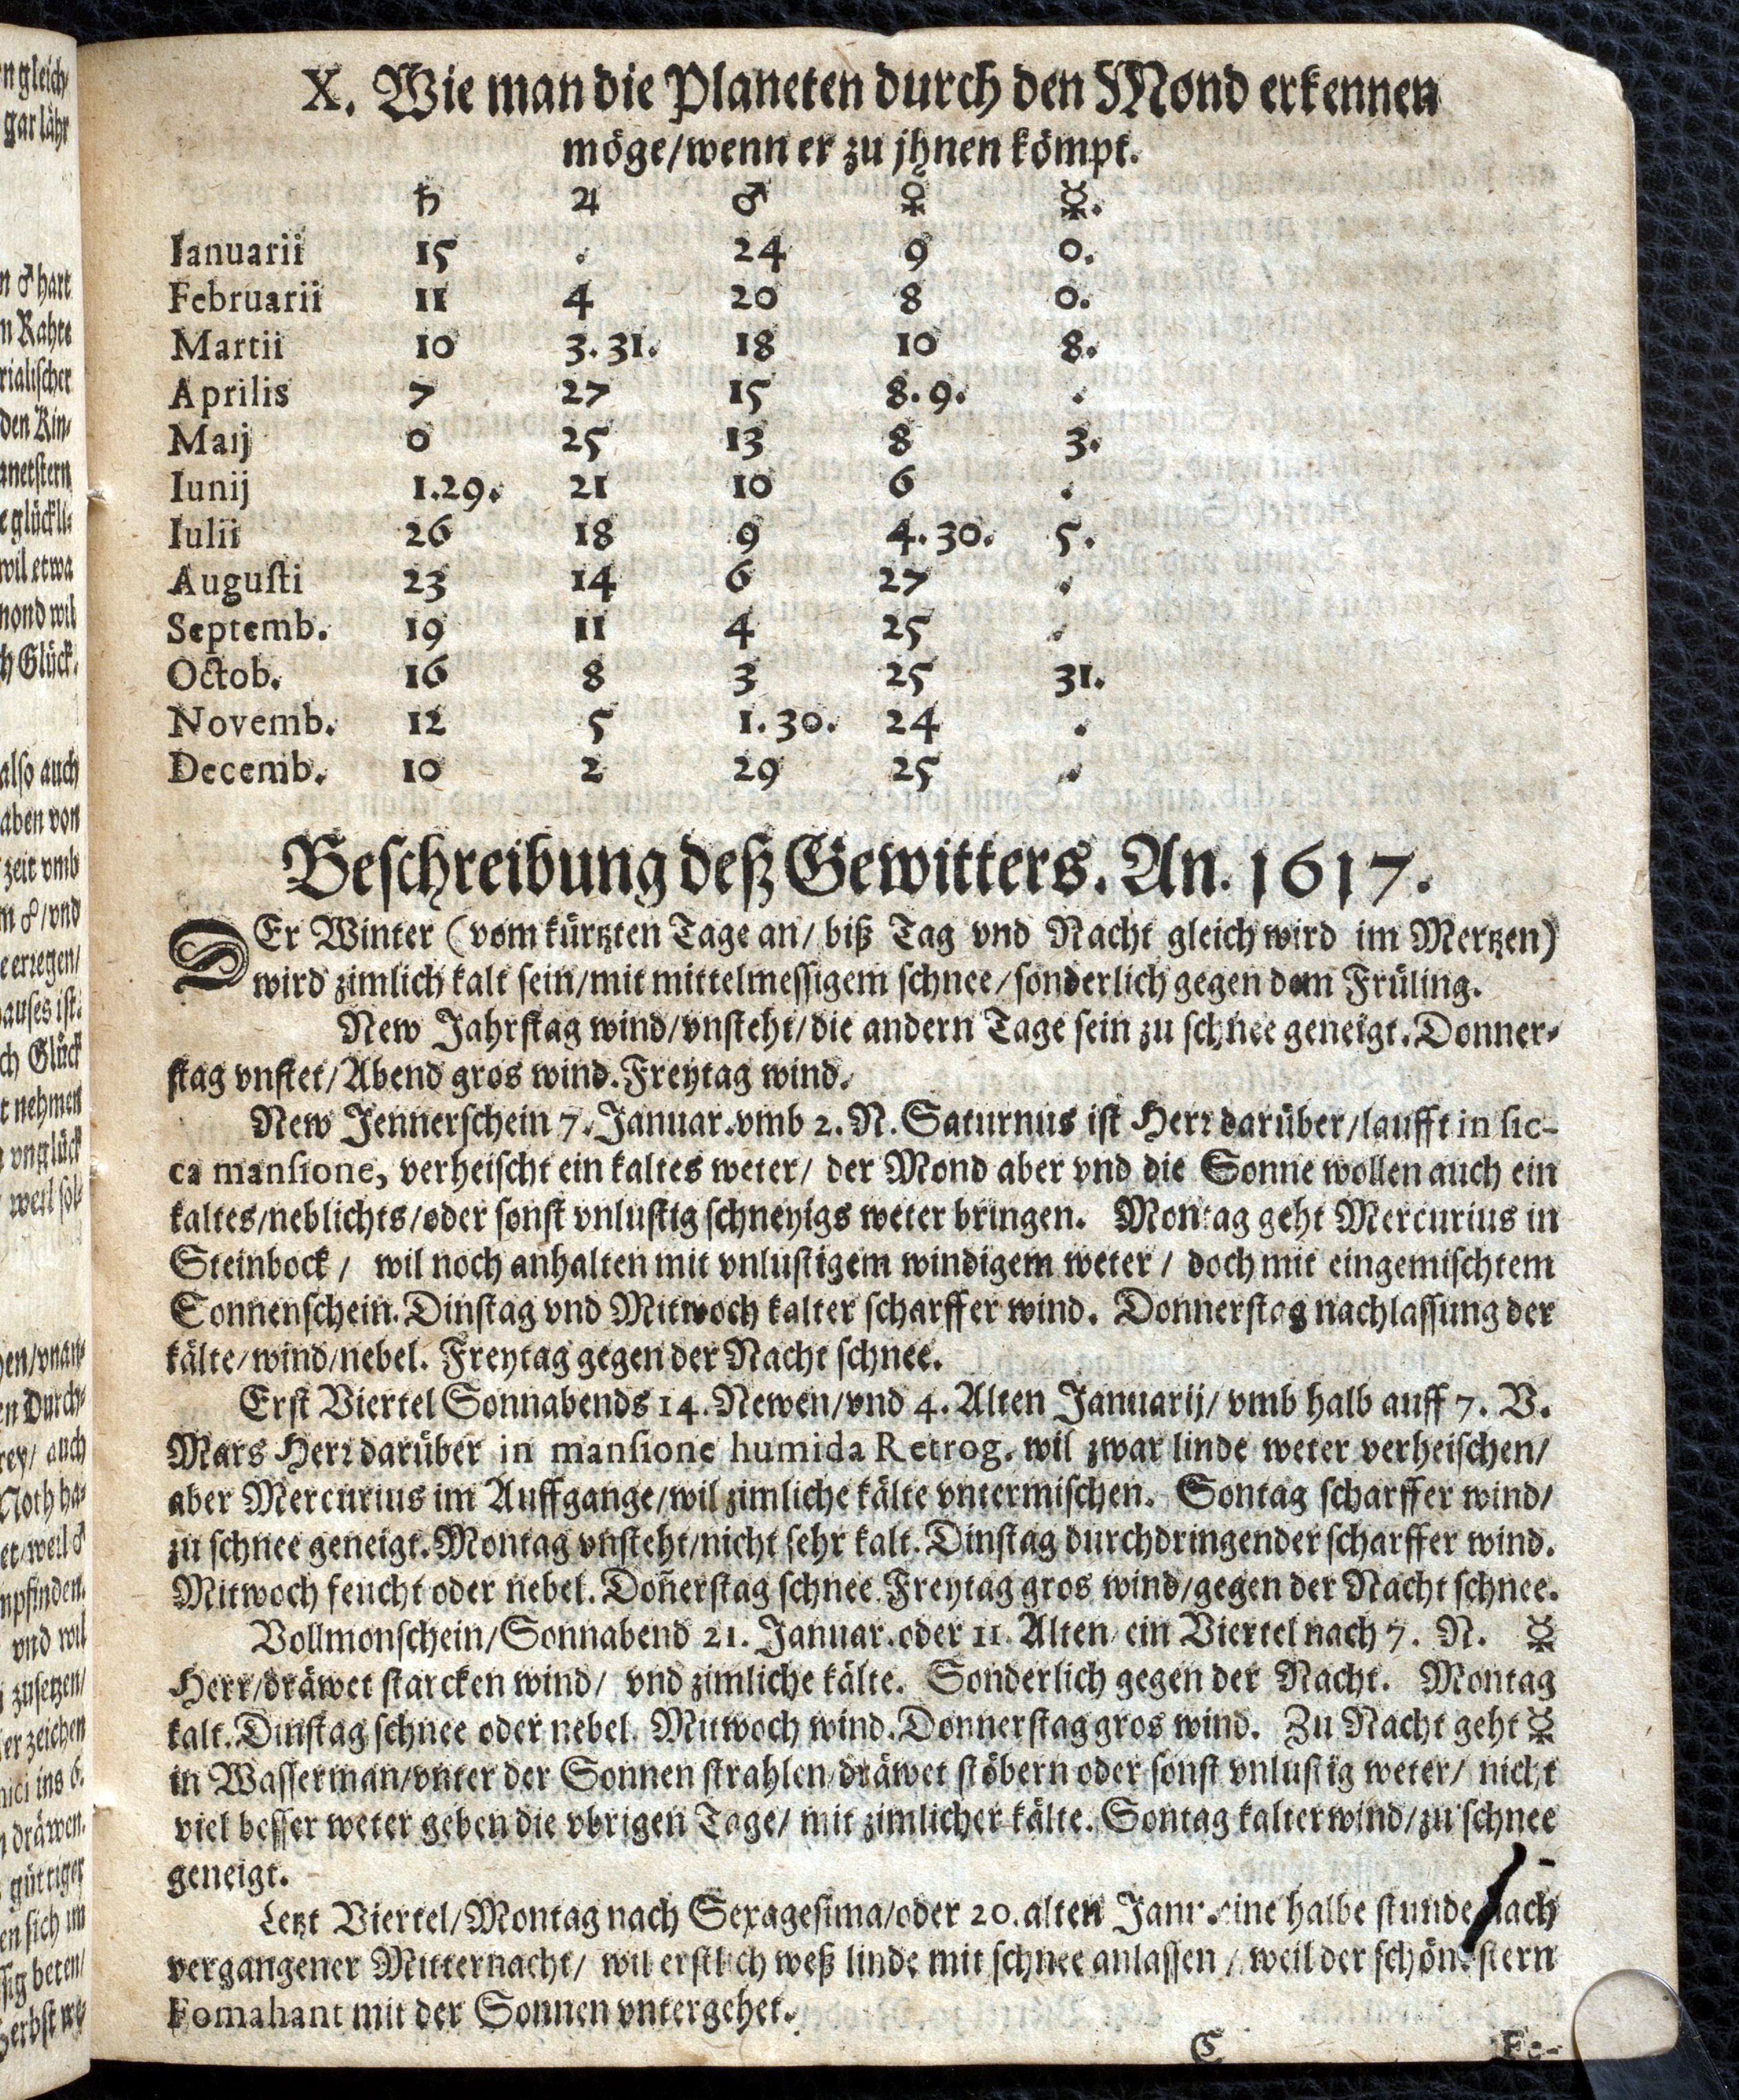 X. Wie man die Planeten durch den Mond erkennen
möge/wenn er zu jhnen kömpt.
♄ ♃ ♂ ☿ ☿.
Ianuarii 15 . 24 9 0.
Februarii 11 4 20 8 0.
Martii 10 3. 31. 18 10 8.
Aprilis 7 27 15 8. 9. .
Maij 0 25 13 8 3.
Iunij 1.29. 21 10 6 .
Iulii 26 18 9 4. 30. 5.
Augusti 23 14 6 27 .
Septemb. 19 11 4 25 .
Octob. 16 8 3 25 31.
Novemb. 12 5 1. 30. 24 .
Decemb. 10 2 29 25 .
Beschreibung deß Gewitters. An. 1617.
DEr Winter (vom kürtzten Tage an/ biß Tag vnd Nacht gleich wird im Mertzen)
wird zimlich kalt sein/mit mittelmessigem schnee/sonderlich gegen dem Früling.
New Jahrstag wind/vnsteht/die andern Tage sein zu schnee geneigt. Donner-
stag vnstet/Abend gros wind. Freytag wind.
New Jennerschein 7. Januar. vmb 2. N. Saturnus ist Herr darüber/laufft in sic-
ca mansione, verheischt ein kaltes weter/ der Mond aber vnd die Sonne wollen auch ein
kaltes/neblichts/oder sonst vnlustig schneyigs weter bringen. Montag geht Mercurius in
Steinbock/ wil noch anhalten mit vnlustigem windigem weter/ doch mit eingemischtem
Sonnenschein. Dinstag vnd Mitwoch kalter scharffer wind. Donnerstag nachlassung der
kälte/wind/nebel. Freytag gegen der Nacht schnee.
Erst Viertel Sonnabends 14. Newen/vnd 4. Alten Januarij/ vmb halb auff 7. V.
Mars Herr darüber in mansione humida Retrog. wil zwar linde weter verheischen/
aber Mercurius im Auffgange/wil zimliche kälte vntermischen. Sontag scharffer wind/
zu schnee geneigt. Montag vnsteht/nicht sehr kalt. Dinstag durchdringender scharffer wind.
Mitwoch feucht oder nebel. Don̄erstag schnee. Freytag gros wind/gegen der Nacht schnee.
Vollmonschein/Sonnabend 21. Januar. oder 11. Alten/ ein Viertel nach 7. N. ☿
Herr/dräwet starcken wind/ vnd zimliche kälte. Sonderlich gegen der Nacht. Montag
kalt. Dinstag schnee oder nebel. Mitwoch wind. Donnerstag gros wind. Zu Nacht geht ☿
in Wasserman/vnter der Sonnen strahlen/dräwet stöbern oder sonst vnlustig weter/ nicht
viel besser weter geben die vbrigen Tage/ mit zimlicher kälte. Sontag kalter wind/zu schnee
geneigt.
Letzt Viertel/Montag nach Sexagesima/oder 20. alten Janr. eine halbe stunde nach
vergangener Mitternacht/ wil erstlich weß linde mit schnee anlassen/ weil der schöne stern
Fomahant mit der Sonnen vntergehet.
C Fe-